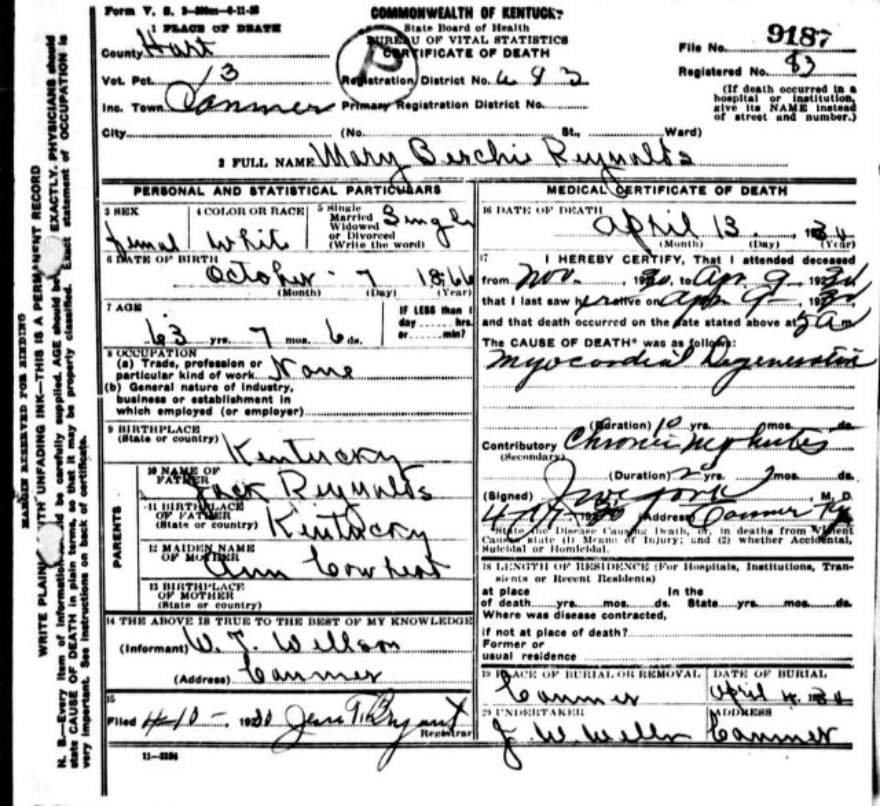 Form V. S.
COMMONWEALTH OF KENTUCKY
State Board of Health
BUREAU OF VITAL STATISTICS
CERTIFICATE OF DEATH
1 PLACE OF DEATH
County Hart
File No. 9187
Vot. Pct. 13
Registration District No. 693
Registered No. 83
Inc. Town Canmer Primary Registration District No.
(If death occurred in a
hospital or institution,
give its NAME instead
of street and number.)
City (No. St., Ward)
2 FULL NAME Mary Reynolds
PERSONAL AND STATISTICAL PARTICULARS
3 SEX
femal
4 COLOR OR RACE
White
5 Single
Married
Widowed
or Divorced
(Write the word)
Single
6 DATE OF BIRTH
October 7 1866
(Month) (Day) (Year)
7 AGE
63 yrs. 7 mos. 6 ds.
IF LESS than 1
day hrs.
or min?
8 OCCUPATION
(a) Trade, profession or
particular kind of work None
(b) General nature of industry,
business or establishment in
which employed (or employer)
9 BIRTHPLACE
(State or country)
Kentucky
PARENTS
10 NAME OF
FATHER
Jack Reynolds
11 BIRTHPLACE
OF FATHER
(State or country)
Kentucky
12 MAIDEN NAME
OF MOTHER
Ann Cowherd
13 BIRTHPLACE
OF MOTHER
(State or country)
14 THE ABOVE IS TRUE TO THE BEST OF MY KNOWLEDGE
(Informant) W. T. Willson
(Address) Canmer
15
Filed 4-10- 1930 Jess T. Bryant
Registrar
11-3184
MEDICAL CERTIFICATE OF DEATH
16 DATE OF DEATH
April 13 1930
(Month) (Day) (Year)
17 I HEREBY CERTIFY, That I attended deceased
from Nov. to Apr 9 1930
that I last saw her alive on Apr 9 1930
and that death occurred on the date stated above at 5 a m.
The CAUSE OF DEATH* was as follows:
Myocardial Degeneration
(Duration) 10 yrs. mos. ds.
Contributory Chronic nephritis
(Secondary)
(Duration) 2 yrs. mos. ds.
(Signed) M. D.
1930 (Address) Canmer Ky
*State the Disease Causing Death, or, in deaths from Violent
Causes state (1) Means of Injury; and (2) whether Accidental,
Suicidal or Homicidal.
18 LENGTH OF RESIDENCE (For Hospitals, Institutions, Tran-
sients or Recent Residents)
at place In the
of death yrs. mos. ds. State yrs. mos. ds.
Where was disease contracted,
if not at place of death?
Former or
usual residence
19 PLACE OF BURIAL OR REMOVAL
Canmer
DATE OF BURIAL
April 1930
20 UNDERTAKER
J. W.
ADDRESS
Canmer
MARGIN RESERVED FOR BINDING
WRITE PLAINLY WITH UNFADING INK—THIS IS A PERMANENT RECORD
N. B.—Every item of information should be carefully supplied. AGE should be EXACTLY. PHYSICIANS should
state CAUSE OF DEATH in plain terms, so that it may be properly classified. Exact statement of OCCUPATION is
very important. See instructions on back of certificate.